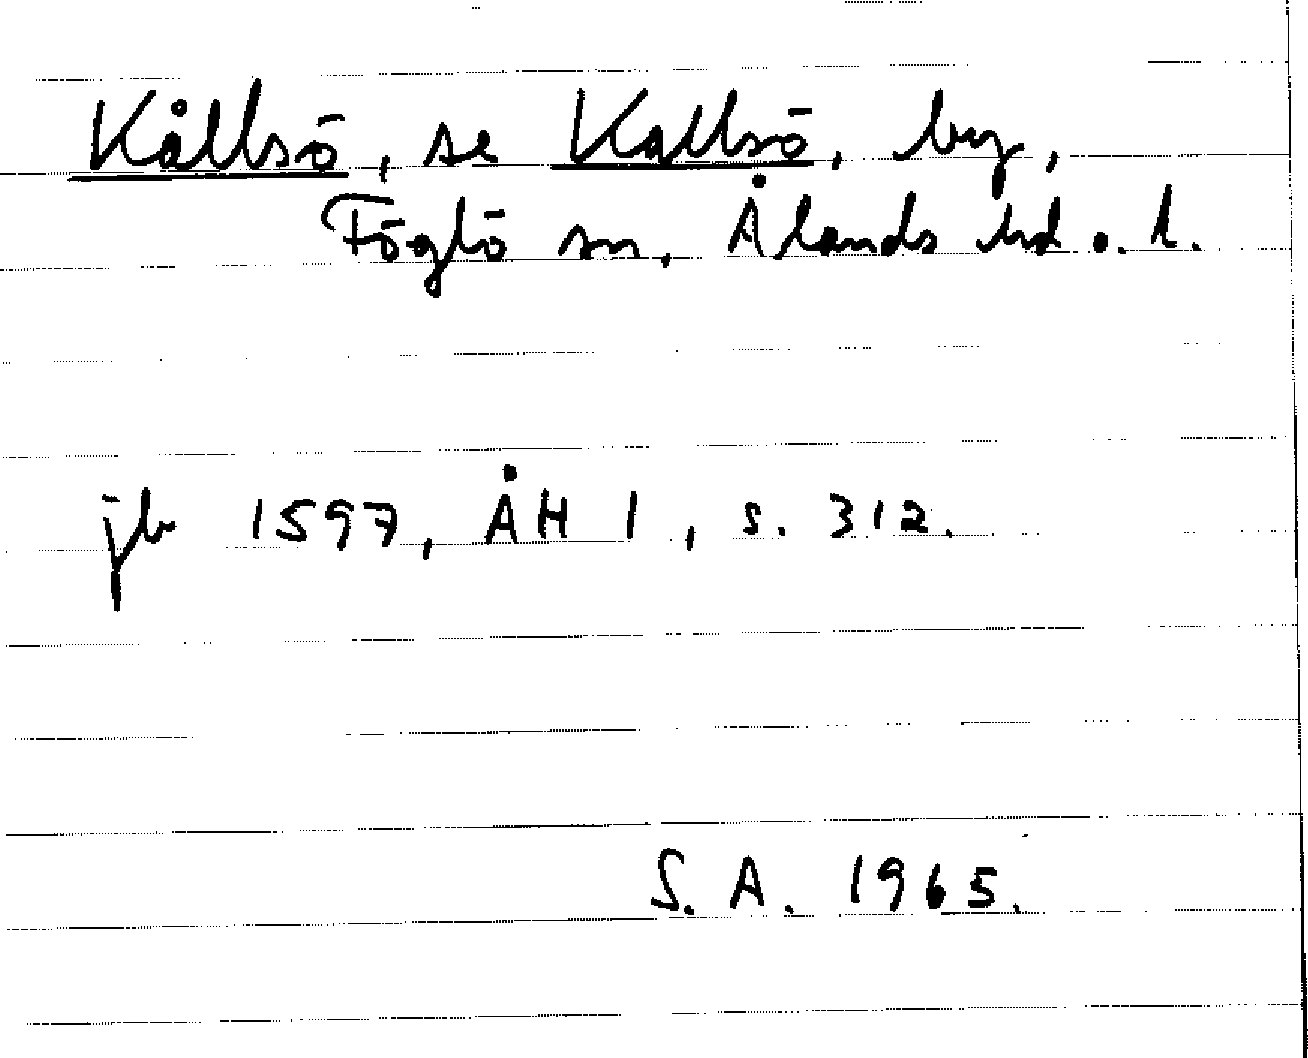 Kållsö, se Kallsö, by,
Föglö sn, Ålands hd o. l.
jb 1597, ÅH I, s. 312.
S. A. 1965.